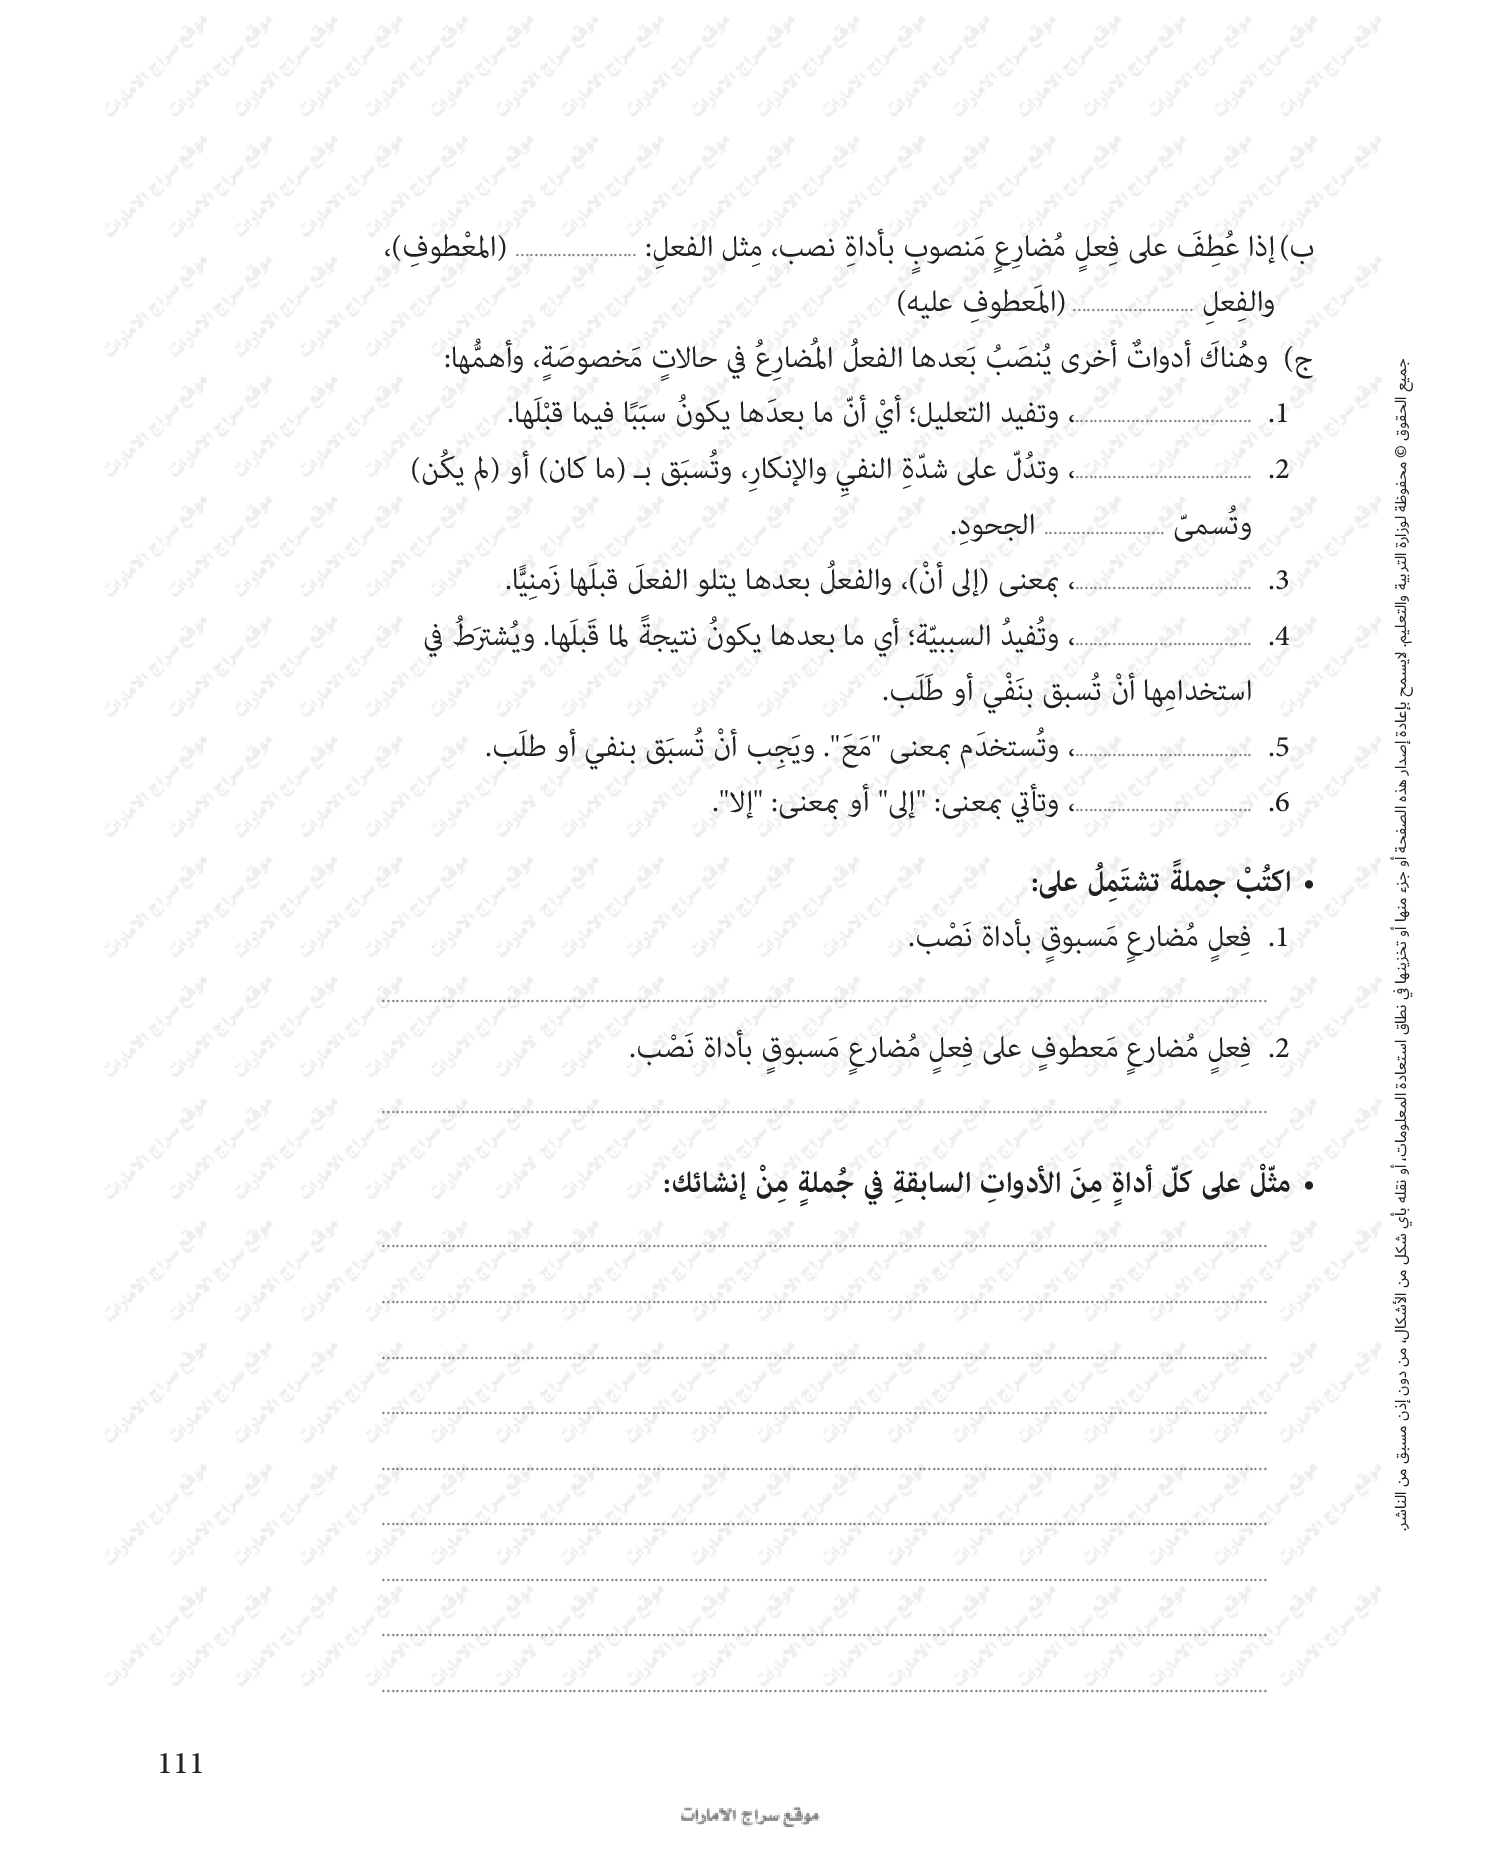 ب) إذا عُطِفَ على فِعلٍ مُضارِعٍ مَنصوبٍ بأداةِ نصب، مِثل الفعلِ: ......................... (المعْطوفِ)،
والفِعلِ ......................... (المَعطوفِ عليه)
ج) وهُناكَ أدواتٌ أخرى يُنصَبُ بَعدها الفعلُ المُضارعُ في حالاتٍ مَخصوصَةٍ، وأهمُّها:
1. .....................................، وتفيد التعليل؛ أيْ أنّ ما بعدَها يكونُ سبَبًا فيما قبْلَها.
2. .....................................، وتدُلّ على شدّةِ النفيِ والإنكارِ، وتُسبَق بـ (ما كان) أو (لم يكُن)
وتُسمىّ ......................... الجحودِ.
3. .....................................، بمعنى (إلى أنْ)، والفعلُ بعدها يتلو الفعلَ قبلَها زَمنِيًّا.
4. .....................................، وتُفيدُ السببيّة؛ أي ما بعدها يكونُ نتيجةً لما قَبلَها. ويُشترَطُ في
استخدامِها أنْ تُسبق بنَفْي أو طَلَب.
5. .....................................، وتُستخدَم بمعنى "مَعَ". ويَجِب أنْ تُسبَق بنفي أو طلَب.
6. .....................................، وتأتي بمعنى: "إلى" أو بمعنى: "إلا".
• اكتُبْ جملةً تشتَمِلُ على:
1. فِعلٍ مُضارعٍ مَسبوقٍ بأداة نَصْب.
2. فِعلٍ مُضارعٍ مَعطوفٍ على فِعلٍ مُضارعٍ مَسبوقٍ بأداة نَصْب.
• مثّلْ على كلّ أداةٍ مِنَ الأدواتِ السابقةِ في جُملةٍ مِنْ إنشائك:
جميع الحقوق © محفوظة لوزارة التربية والتعليم. لايسمح بإعادة إصدار هذه الصفحة أو جزء منها أو تخزينها في نطاق استعادة المعلومات، أو نقله بأي شكل من الأشكال، من دون إذن مسبق من الناشر.
111
موقع سراج الامارات